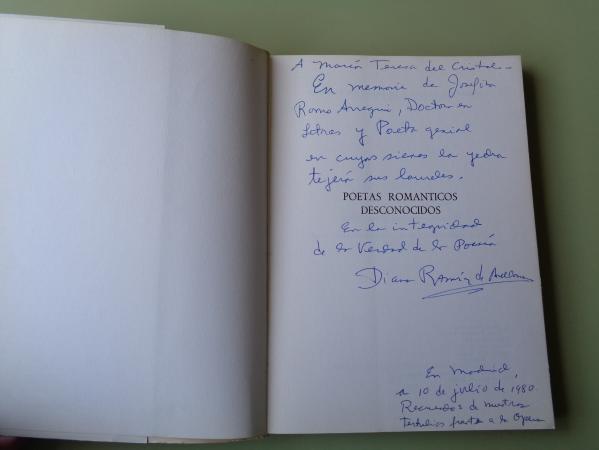 A María Teresa del Cristal -
En memoria de Josefina
Romo Arregui, Doctor en
Letras y Poeta genial
en cuyas sienes la yedra
tejerá sus laureles.
POETAS ROMANTICOS
DESCONOCIDOS
En la integridad
de la Verdad de la Poesía
Diana Ramírez de Arellano
En Madrid,
a 10 de julio de 1980.
Recuerdos de nuestras
tertulias frente a la Opera